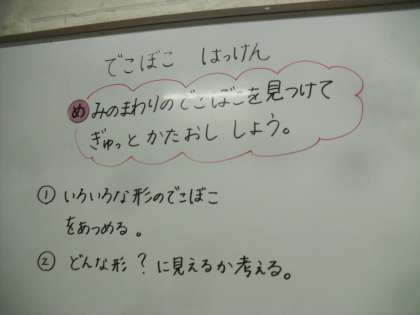 でこぼこ はっけん
め みのまわりのでこぼこを見つけて
ぎゅっと かたおし しよう。
① いろいろな形のでこぼこ
をあつめる。
② どんな形?に見えるか考える。